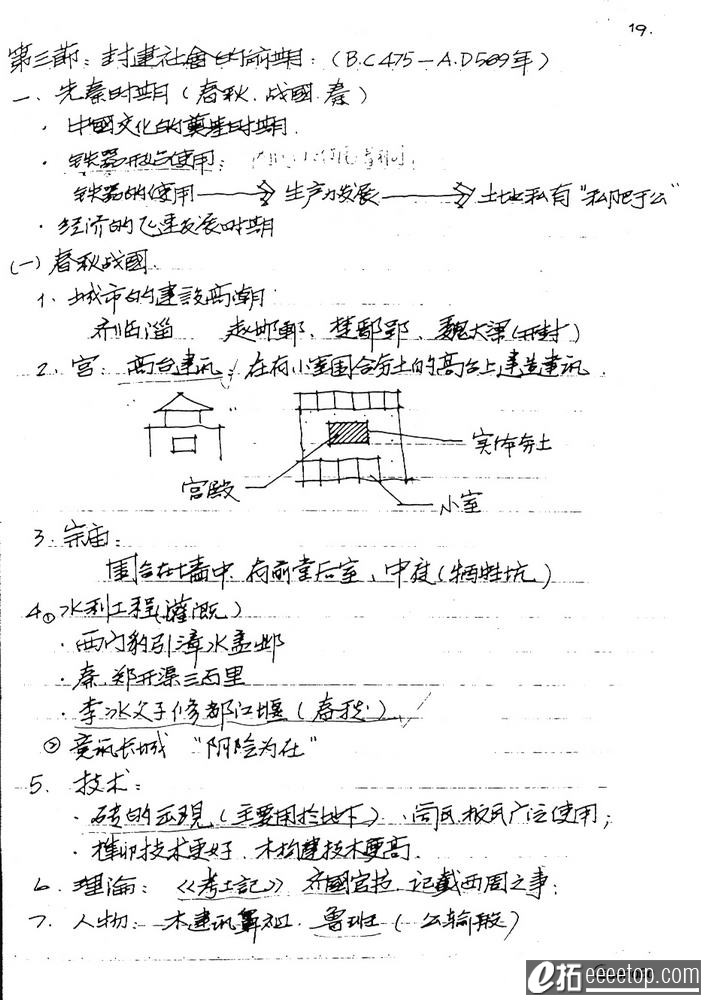 19.
第三節：封建社會的前期：（B.C 475－A.D 589年）
一、先秦时期（春秋.战國.秦）
· 中國文化的奠基时期.
· 铁器形占使用：
铁器的使用 → 生产力发展 → 土地私有 "私肥于公"
· 经济的飞速发展时期
(一) 春秋战國.
1、城市的建設高潮
齐临淄 赵邯郸、楚鄢郢、魏大梁(开封)
2、宫：高台建筑：在有小室围合夯土的高台上建造建筑.
实体夯土
宫殿
小室
3、宗庙：
围合在墙中.有前堂后室、中庭(牺牲坑)
4、① 水利工程(灌溉)
· 西门豹引漳水盖邺
· 秦.郑开渠三百里
· 李冰父子修都江堰（春秋）✓
② 竟筑长城 "阴险为在"
5. 技术：
· 砖的出現（主要用於地下）、筒瓦.板瓦广泛使用；
· 榫卯技术更好、木构建技术更高.
6. 理論：《考工記》 齐國官技.记載西周之事；
7. 人物：木建筑鼻祖.魯班（公输般）
e拓 eeeetop.com